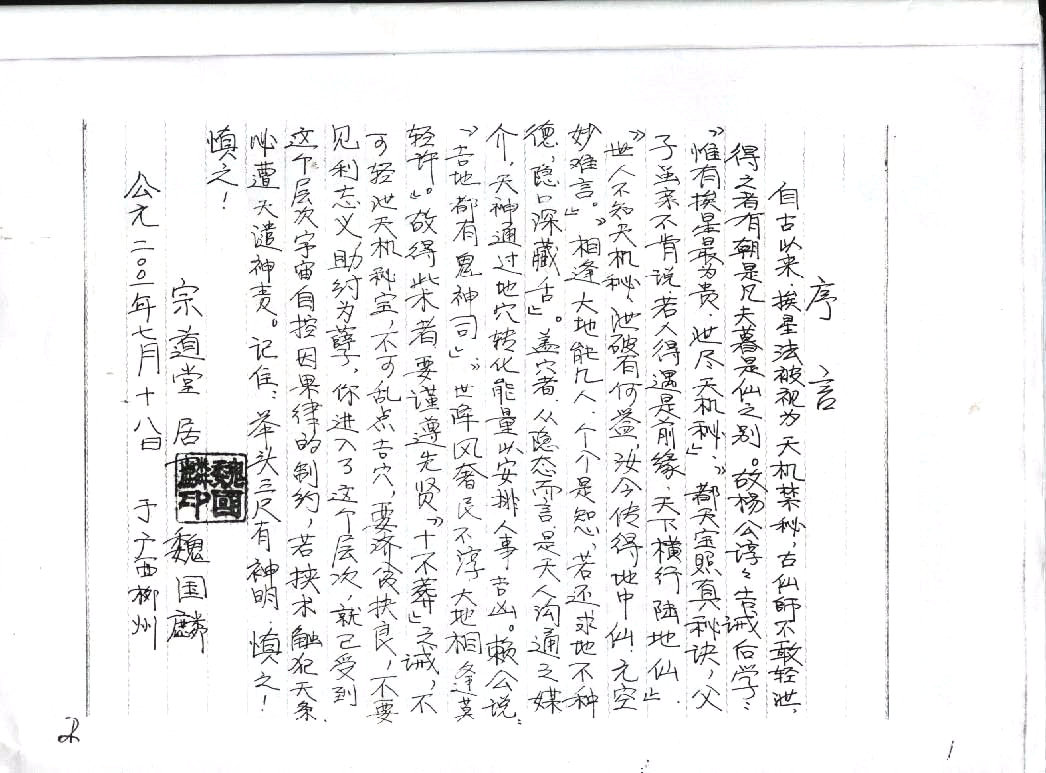 序言
自古以来，挨星法被视为天机禁秘，古仙师不敢轻泄，
得之者有朝是凡夫暮是仙之别。故杨公谆々告诫后学：
》惟有挨星最为贵，泄尽天机秘」、》都天宝照真秘诀，父
子虽亲不肯说若人得遇是前缘、天下横行陆地仙」
》世人不知天机秘，泄破有何益，汝今传得地中仙，元空
妙难言。」》相逢大地能几人，个个是知心，若还求地不种
德，隐口深藏舌」。盖穴者，从隐态而言，是天人沟通之媒
介，天神通过地穴转化能量以安排人事吉凶。赖公说：
》吉地都有鬼神司」》世降风奢民不淳大地相逢莫
轻许」。故得此术者要谨遵先贤》十不葬」之诫，不
可轻泄天机秘宝，不可乱点吉穴，要济贫扶良，不要
见利忘义，助纣为孽，你进入了这个层次，就已受到
这个层次宇宙自控因果律的制约，若挟术触犯天条
必遭天谴神责。记住：举头三尺有神明，慎之！
慎之！
宗道堂居 魏国麟
魏國麟印
公元二00一年七月十八日 于广西柳州
1